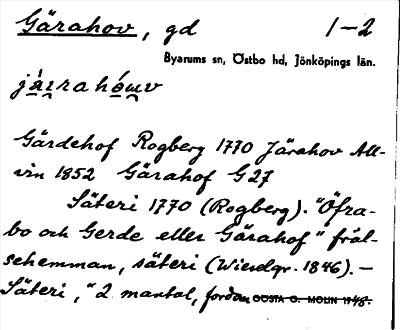 Gärahov, gd 1–2
Byarums sn, Östbo hd, Jönköpings län.
Gärdehof Rogberg 1770 Järahov All-
vin 1852 Gärahof G 27
Säteri 1770 (Rogberg). "Öfra-
bo och Gerde eller Gärahof" fräl-
sehemman, säteri (Wieselgr. 1846). –
Säteri, "2 mantal, fordom GÖSTA G. MOLIN 1948.